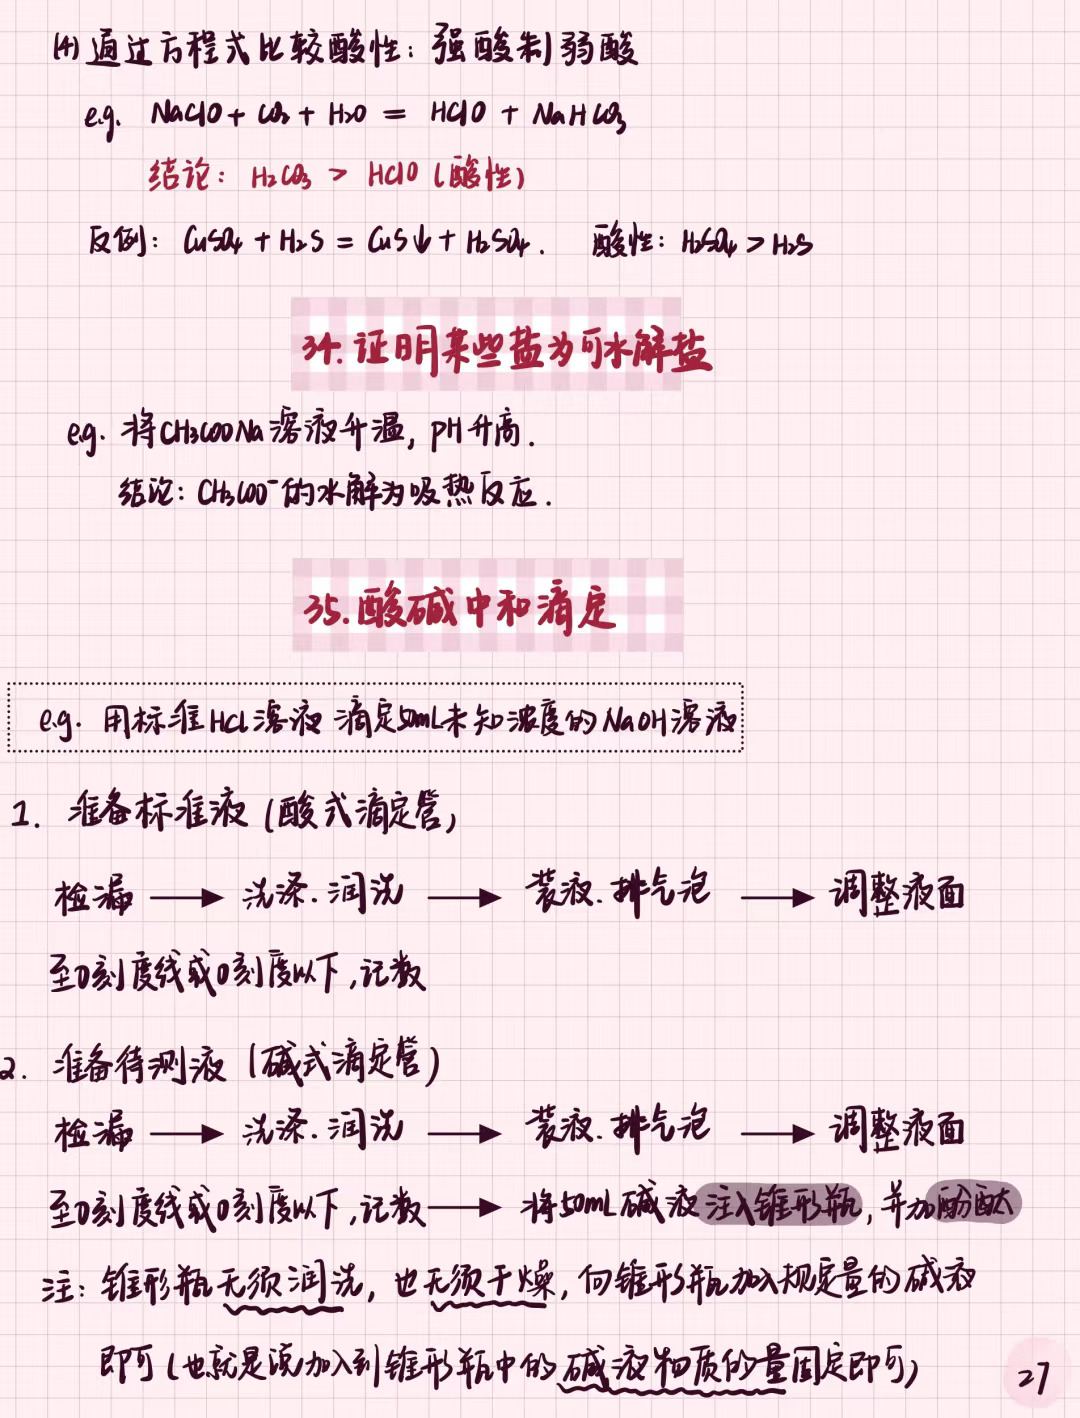 (4) 通过方程式比较酸性：强酸制弱酸
e.g. NaClO + CO₂ + H₂O = HClO + NaHCO₃
结论：H₂CO₃ > HClO (酸性)
反例：CuSO₄ + H₂S = CuS↓ + H₂SO₄. 酸性：H₂SO₄ > H₂S
34. 证明某些盐为可水解盐
e.g. 将CH₃COONa溶液升温, pH升高.
结论：CH₃COO⁻的水解为吸热反应.
35. 酸碱中和滴定
e.g. 用标准HCl溶液 滴定50mL未知浓度的NaOH溶液
1. 准备标准液 (酸式滴定管)
检漏 → 洗涤.润洗 → 装液.排气泡 → 调整液面
至0刻度线或0刻度以下, 记数
2. 准备待测液 (碱式滴定管)
检漏 → 洗涤.润洗 → 装液.排气泡 → 调整液面
至0刻度线或0刻度以下, 记数 → 将50mL碱液注入锥形瓶, 并加酚酞
注：锥形瓶无须润洗, 也无须干燥, 向锥形瓶加入规定量的碱液
即可 (也就是说加入到锥形瓶中的碱液物质的量固定即可)
27